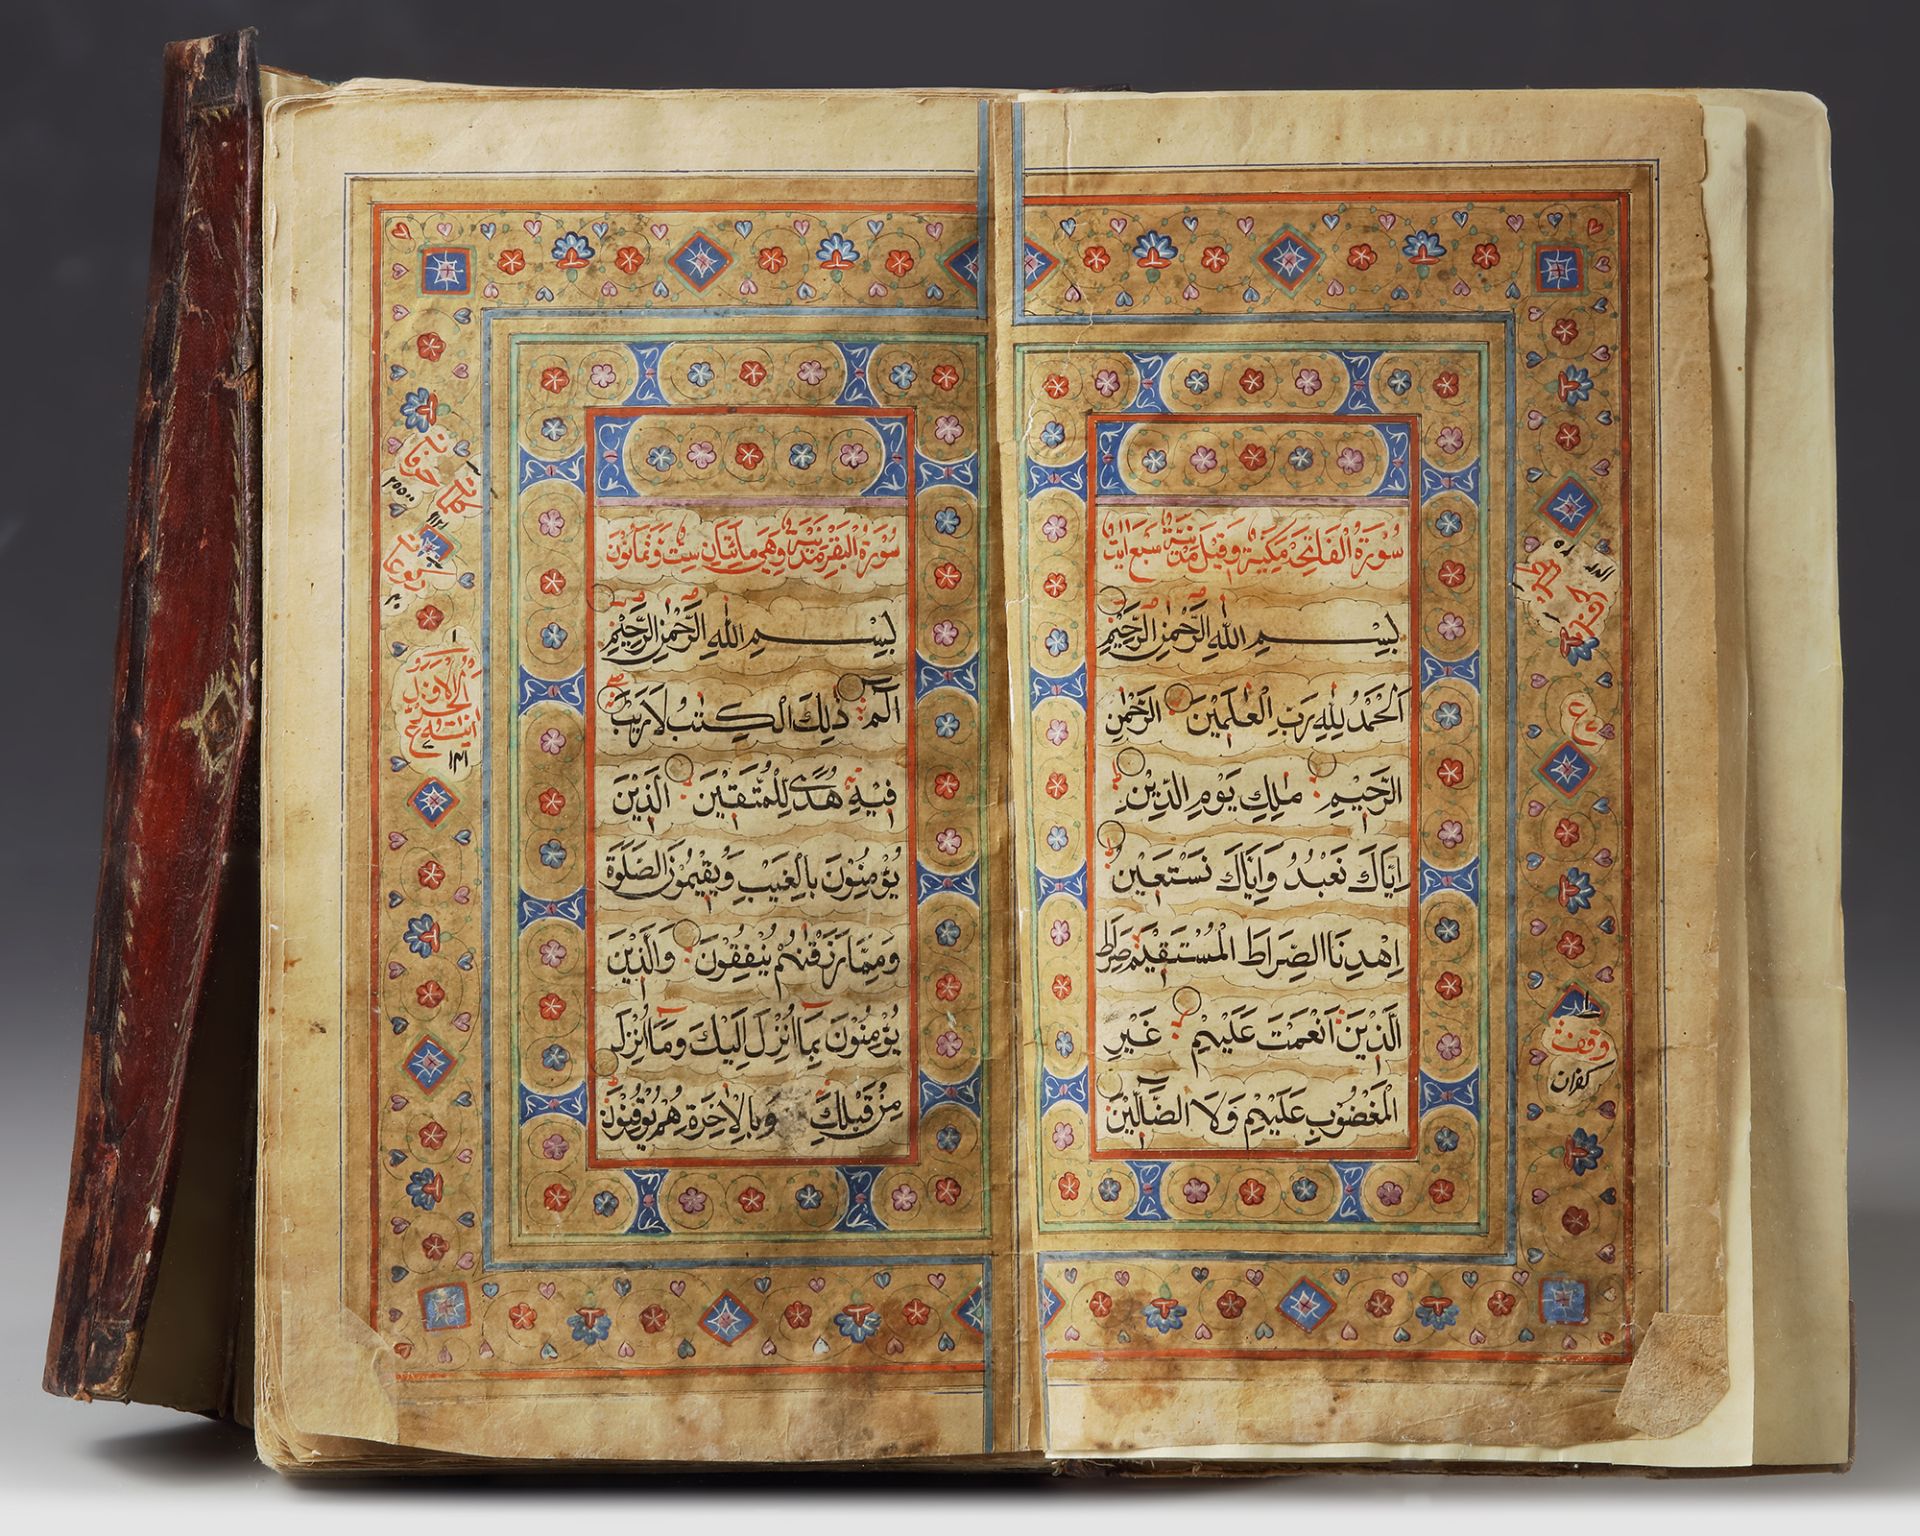 سُوْرَةُ الْفَاتِحَةِ مَكِّيَّةٌ وَقِيْلَ مَدَنِيَّةٌ سَبْعُ اٰيَاتٍ
بِسْمِ اللّٰهِ الرَّحْمٰنِ الرَّحِيْمِ
اَلْحَمْدُ لِلّٰهِ رَبِّ الْعٰلَمِيْنَ الرَّحْمٰنِ
الرَّحِيْمِ مٰلِكِ يَوْمِ الدِّيْنِ
اِيَّاكَ نَعْبُدُ وَاِيَّاكَ نَسْتَعِيْنُ
اِهْدِنَا الصِّرَاطَ الْمُسْتَقِيْمَ صِرَاطَ
الَّذِيْنَ اَنْعَمْتَ عَلَيْهِمْ غَيْرِ
الْمَغْضُوْبِ عَلَيْهِمْ وَلَا الضَّآلِّيْنَ
وقف
سُوْرَةُ الْبَقَرَةِ مَدَنِيَّةٌ وَهِيَ مِائَتَانِ سِتٌّ وَثَمَانُوْنَ
بِسْمِ اللّٰهِ الرَّحْمٰنِ الرَّحِيْمِ
الٓمٓ ذٰلِكَ الْكِتٰبُ لَا رَيْبَ
فِيْهِ هُدًى لِلْمُتَّقِيْنَ الَّذِيْنَ
يُؤْمِنُوْنَ بِالْغَيْبِ وَيُقِيْمُوْنَ الصَّلٰوةَ
وَمِمَّا رَزَقْنٰهُمْ يُنْفِقُوْنَ وَالَّذِيْنَ
يُؤْمِنُوْنَ بِمَا اُنْزِلَ اِلَيْكَ وَمَا اُنْزِلَ
مِنْ قَبْلِكَ وَبِالْاٰخِرَةِ هُمْ يُوْقِنُوْنَ